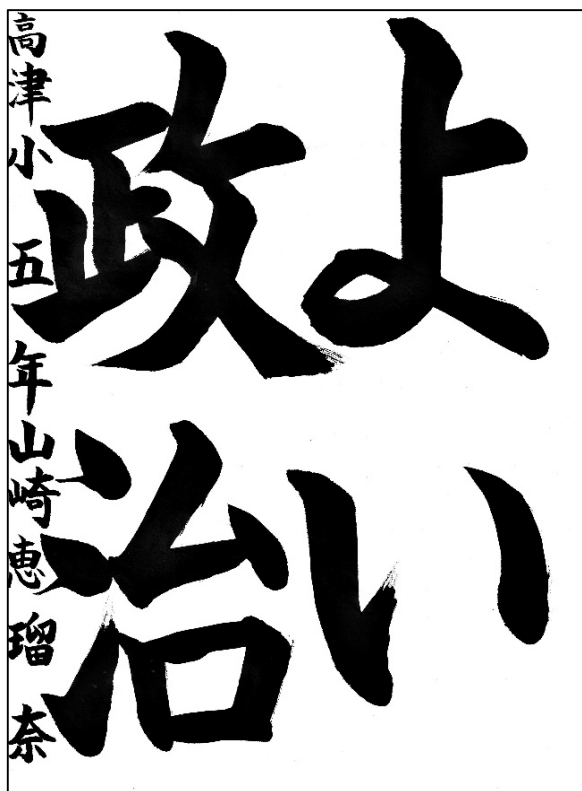 よい
政治
高津小 五年 山崎恵瑠奈